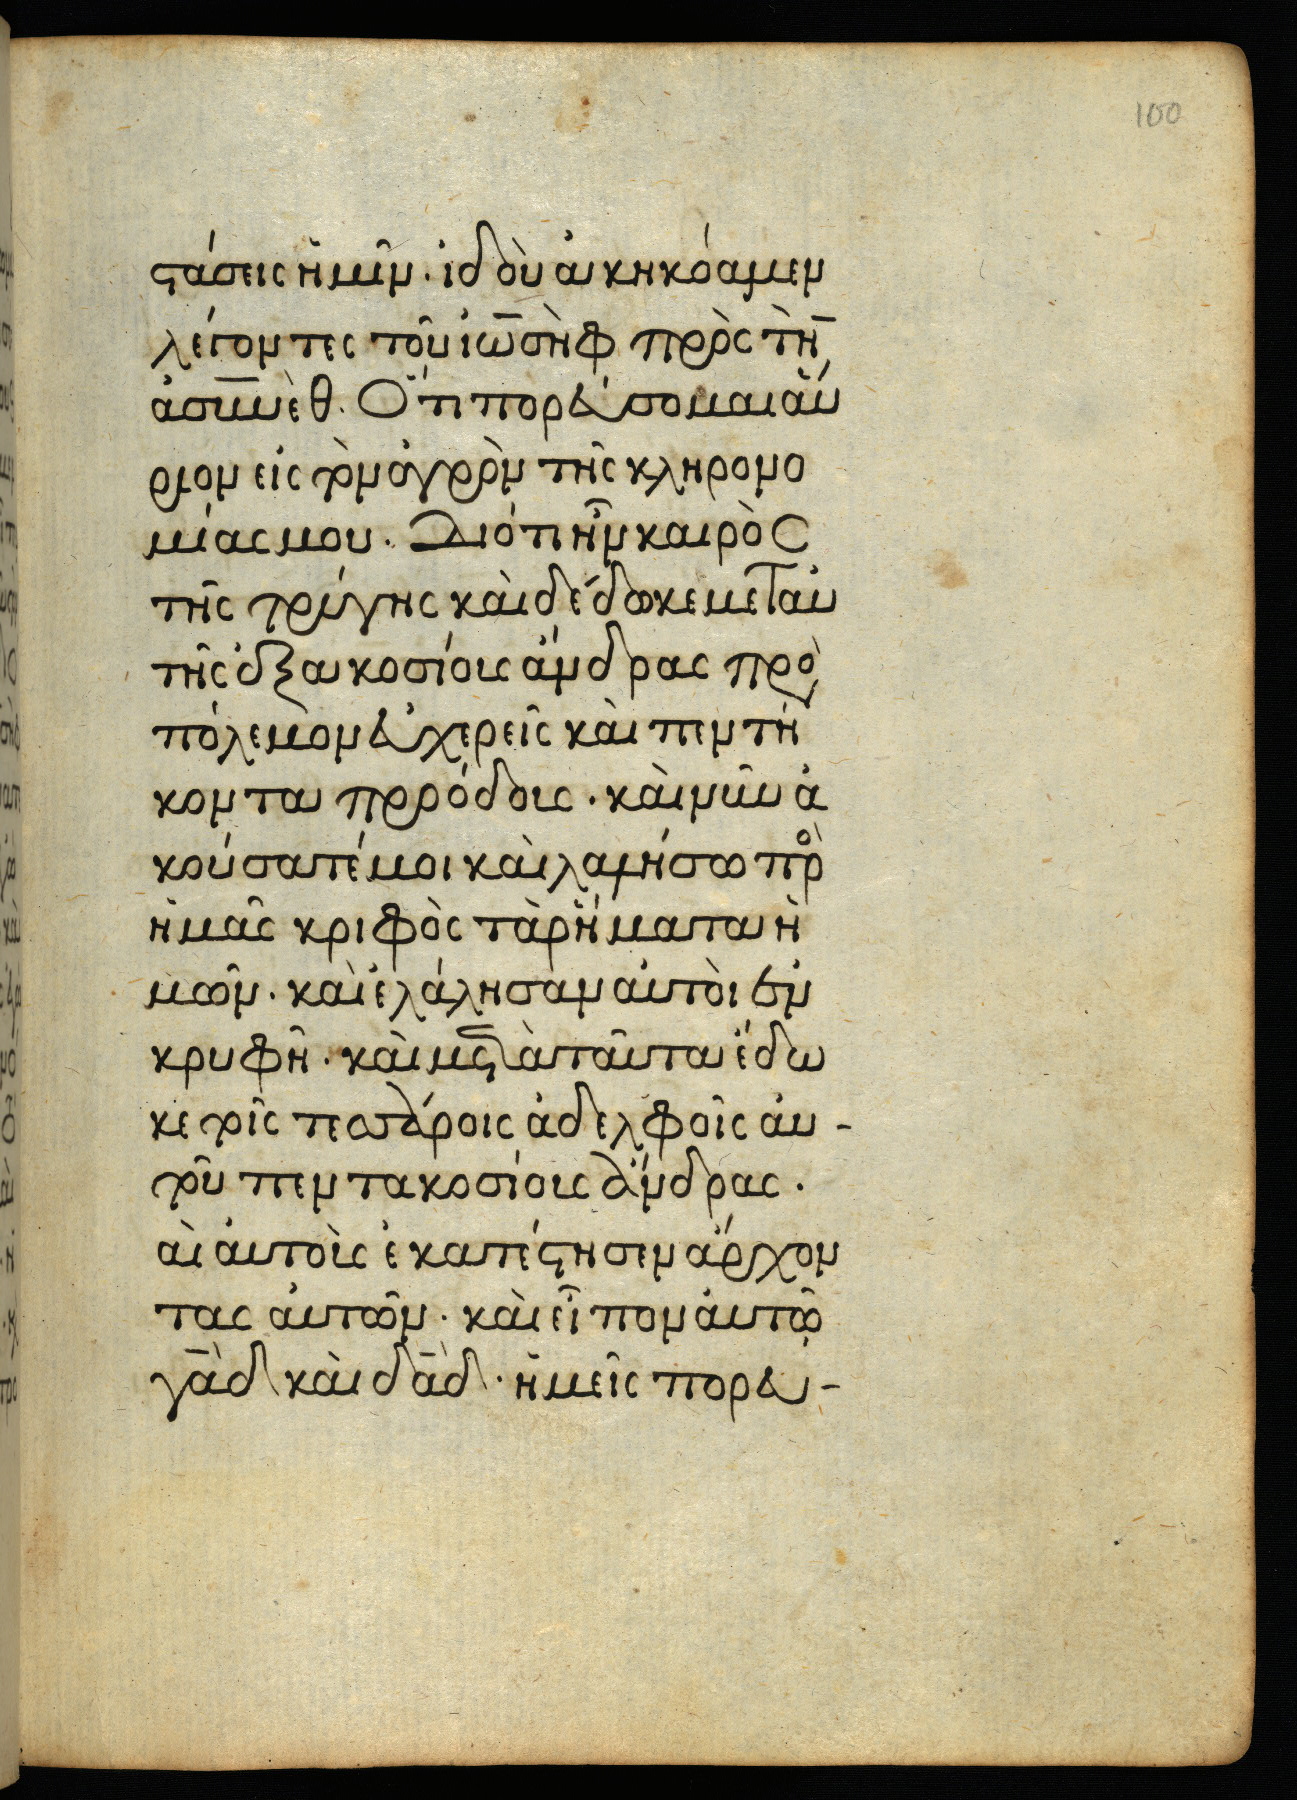 100
στάσεις ἡμῖν. ἰδοὺ ἀκηκόαμεν
λέγοντες τοῦ ἰωσὴφ πρὸς τὴν
ἀσυνὲθ. Ὅτι πορεύσομαι ἄυ
ριον εἰς τὸν ἀγρὸν τῆς κληρονο
μίας μου. Διότι ἦν καιρὸς
τῆς τρύγης καὶ δέδωκε μετ' αὐ
τῆς ἑξακοσίους ἄνδρας πρὸ
πόλεμον εὐχερεῖς καὶ πεντή
κοντα προόδοις. καὶ νῦν ἀ
κούσατέ μοι καὶ λαλήσω πρὸ
ἡμᾶς κριφὸς τὰ ῥήματα ἡ
μῶν. καὶ ἐλάλησαν αὐτὸι ἐν
κρυφῆ. καὶ μετὰ ταῦτα ἔδω
κε τοῖς τεσσάροις ἀδελφοῖς αὐ-
τοῦ πεντακοσίους ἄνδρας.
αὶ αὐτοὶς ἐκατέστησεν ἄρχον
τας αὐτῶν. καὶ εἶπον αὐτῶ
γὰδ καὶ δὰδ. ἡμεῖς πορευ-